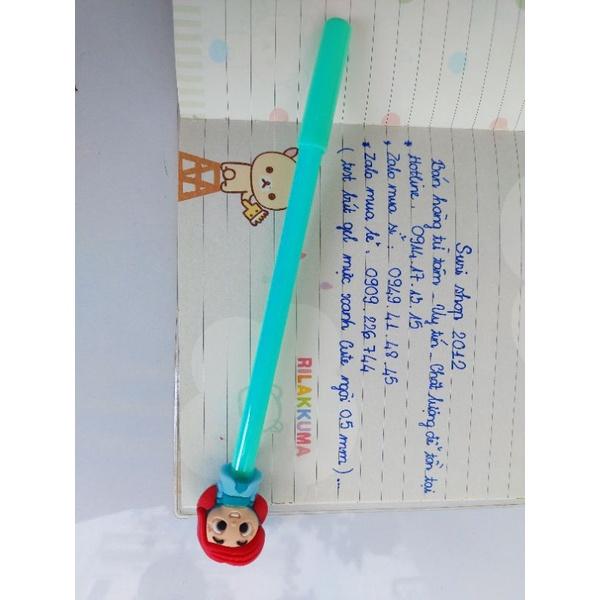 Suri shop 2012
Bán hàng từ tâm - Uy tín - Chất lượng để tồn tại
* Hotline: 0914.17.15.15
* Zalo mua sỉ: 0949.41.48.45
* Zalo mua lẻ: 0909.226.744
( test bút gel mực xanh Cute ngòi 0.5 mm )...
RILAKKUMA